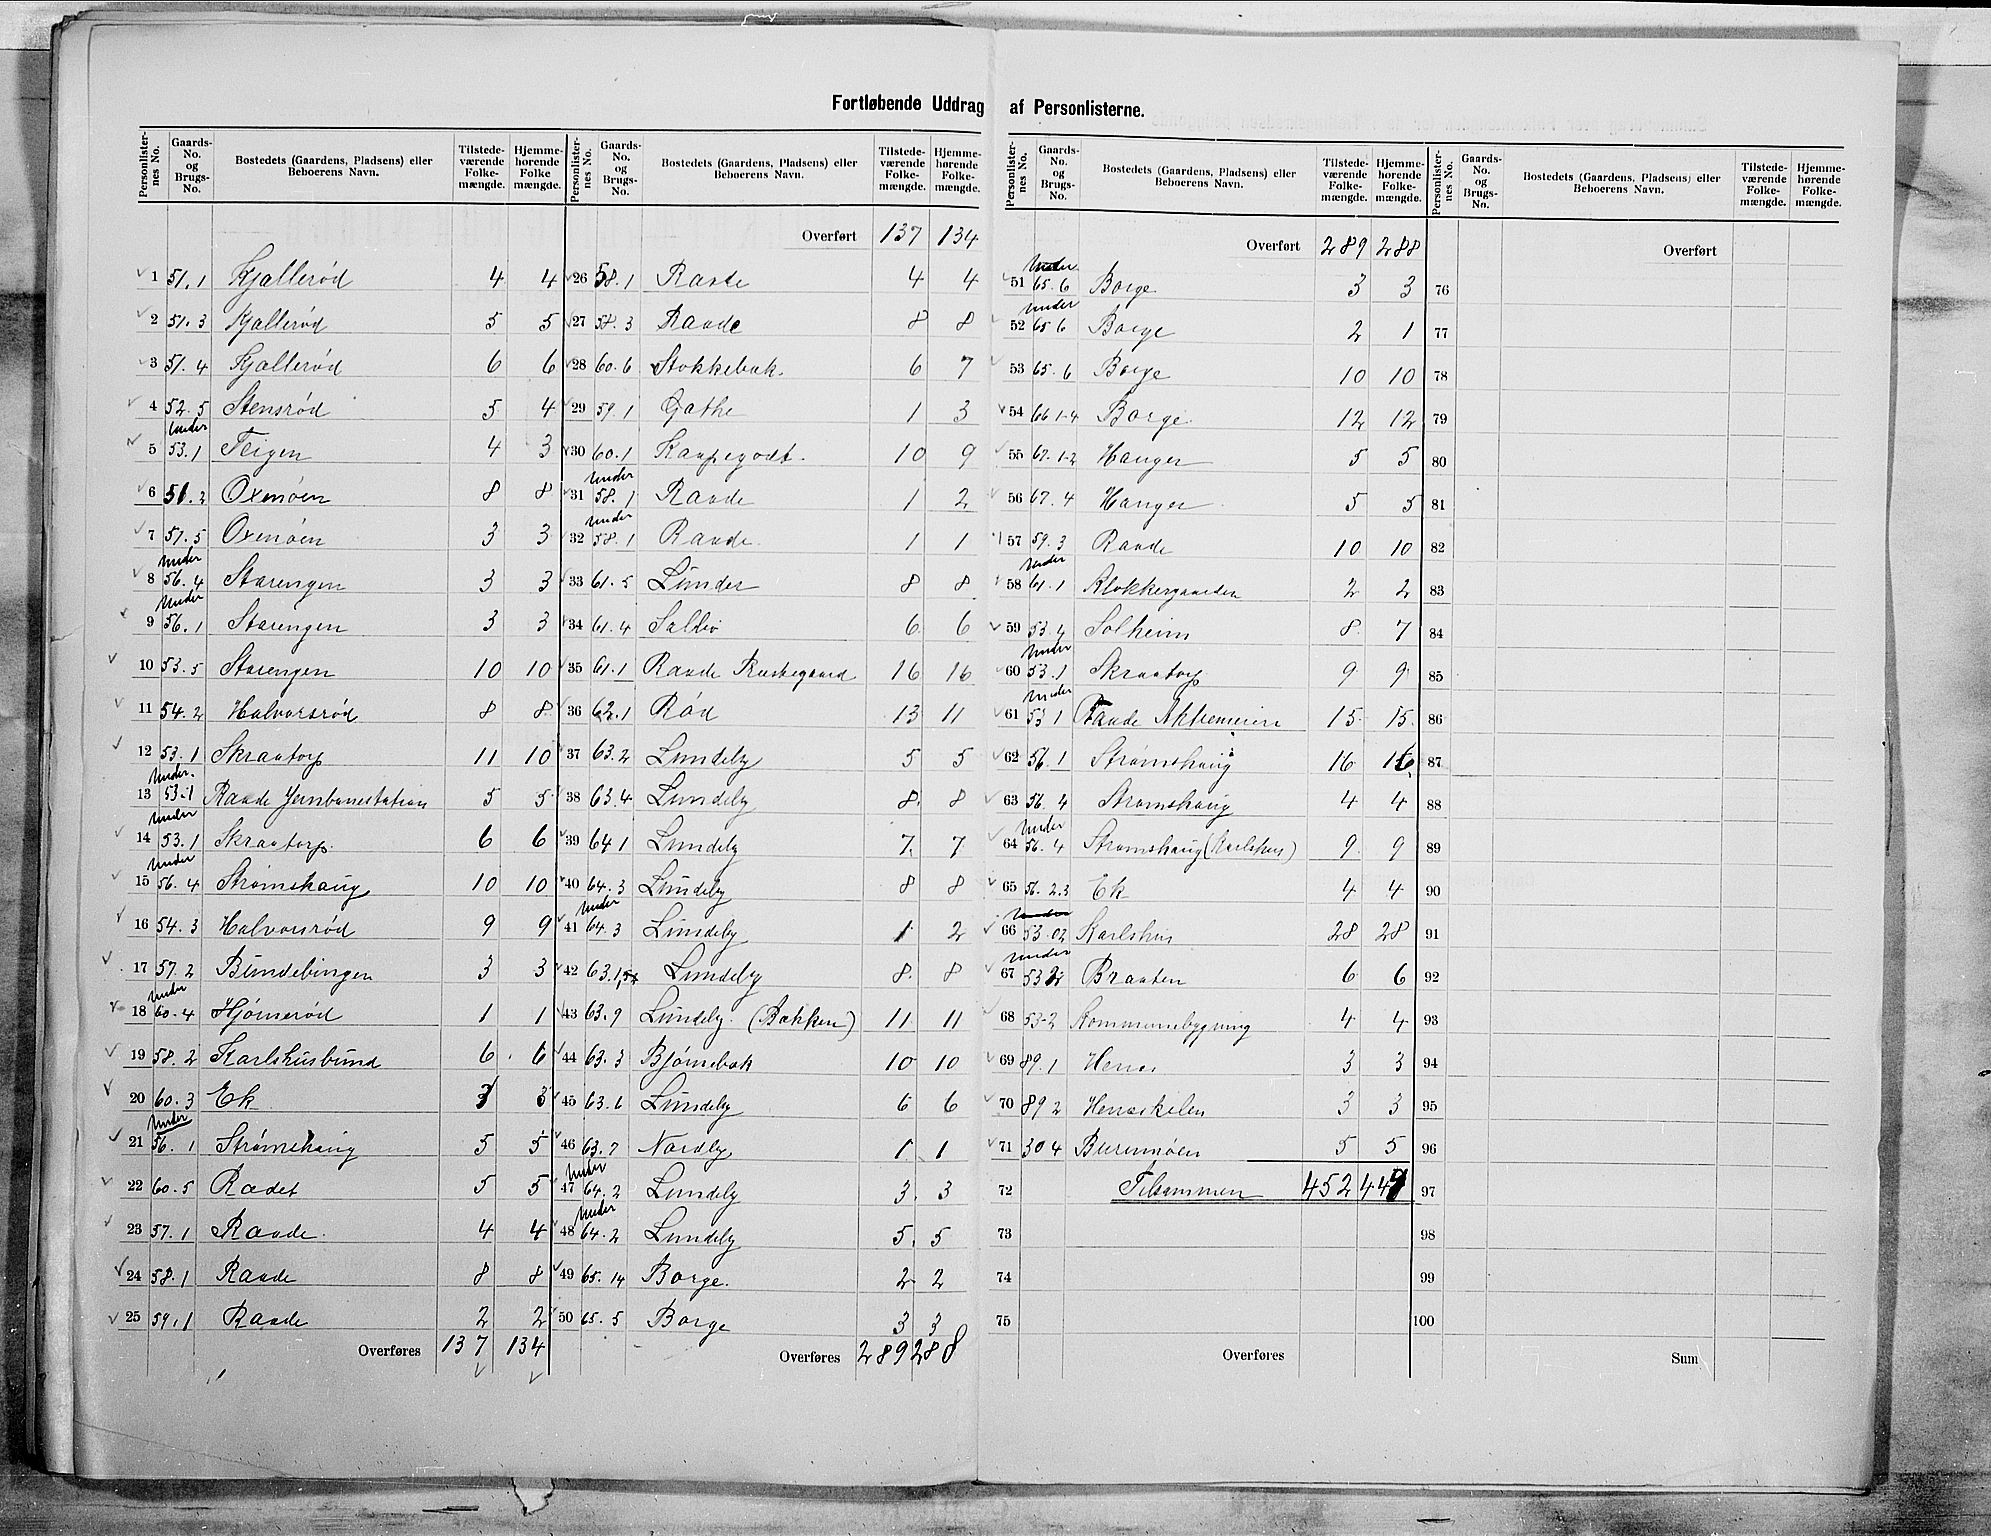 Fortløbende Uddrag af Personlisterne.
Personlisternes No. Gaards-No. og Brugs-No. Bostedets (Gaardens, Pladsens) eller Beboerens Navn. Tilstedeværende Folkemængde. Hjemmehørende Folkemængde.
1 51.1 Kjallerød 4 4
2 51.3 Kjallerød 5 5
3 51.4 Kjallerød 6 6
4 52.5 Stensrød 5 4
5 under 53.1 Teigen 4 3
6 51.2 Oxmøen 8 8
7 51.5 Oxmøen 3 3
8 under 56.4 Starengen 3 3
9 under 56.1 Starengen 3 3
10 53.5 Starengen 10 10
11 54.2 Halvorsrød 8 8
12 53.1 Skraatorp 11 10
13 under 53.1 Raade Jernbanestation 5 5
14 under 53.1 Skraatorp 6 6
15 under 56.4 Strømshaug 10 10
16 54.3 Halvorsrød 9 9
17 57.2 Bundebingen 3 3
18 under 60.4 Hjørnerød 1 1
19 58.2 Karlshusbund 6 6
20 60.3 Ek 3 3
21 under 56.1 Strømshaug 5 5
22 60.5 Rødet 5 5
23 57.1 Raade 4 4
24 58.1 Raade 8 8
25 59.1 Raade 2 2
Overføres 137 134
Personlisternes No. Gaards-No. og Brugs-No. Bostedets (Gaardens, Pladsens) eller Beboerens Navn. Tilstedeværende Folkemængde. Hjemmehørende Folkemængde.
Overført 137 134
26 58.1 Raade 4 4
27 58.3 Raade 8 8
28 60.6 Stokkebæk 6 7
29 59.1 Gathe 1 3
30 60.1 Kaapegodt 10 9
31 under 58.1 Raade 1 2
32 under 58.1 Raade 1 1
33 61.5 Lunder 8 8
34 61.4 Salbo 6 6
35 61.1 Raade Præstegaard 16 16
36 62.1 Rød 13 11
37 63.2 Lundeby 5 5
38 63.4 Lundeby 8 8
39 64.1 Lundeby 7 7
40 64.3 Lundeby 8 8
41 under 64.3 Lundeby 1 2
42 63.1 Lundeby 8 8
43 63.9 Lundeby (Bakken) 11 11
44 63.3 Bjørnebæk 10 10
45 63.6 Lundeby 6 6
46 63.7 Nordby 1 1
47 under 64.2 Lundeby 3 3
48 under 64.2 Lundeby 5 5
49 65.14 Borge 2 2
50 65.5 Borge 3 3
Overføres 289 288
Personlisternes No. Gaards-No. og Brugs-No. Bostedets (Gaardens, Pladsens) eller Beboerens Navn. Tilstedeværende Folkemængde. Hjemmehørende Folkemængde.
Overført 289 288
51 under 65.6 Borge 3 3
52 under 65.6 Borge 2 1
53 65.6 Borge 10 10
54 66 1-4 Borge 12 12
55 67.1-2 Hanger 5 5
56 67.4 Hanger 5 5
57 59.3 Raade 10 10
58 under 61.1 Klokkergaarden 2 2
59 53.4 Solheim 8 7
60 under 53.1 Skraatorp 9 9
61 under 53 1 Raade Aktiemeieri 15 15
62 56.1 Strømshaug 16 16
63 56.4 Strømshaug 4 4
64 under 56.4 Strømshaug (Karlshus) 9 9
65 56.2.3 Ek 4 4
66 under 53.02 Karlshus 28 28
67 under 53 2 Braaten 6 6
68 53-2 Kommunebygning 4 4
69 89.1 Herras 3 3
70 89 2 Herraskelen 3 3
71 30 4 Burumøen 5 5
72 Tilsammen 452 449
73
74
75
Overføres
Personlisternes No. Gaards-No. og Brugs-No. Bostedets (Gaardens, Pladsens) eller Beboerens Navn. Tilstedeværende Folkemængde. Hjemmehørende Folkemængde.
Overført
76
77
78
79
80
81
82
83
84
85
86
87
88
89
90
91
92
93
94
95
96
97
98
99
100
Sum